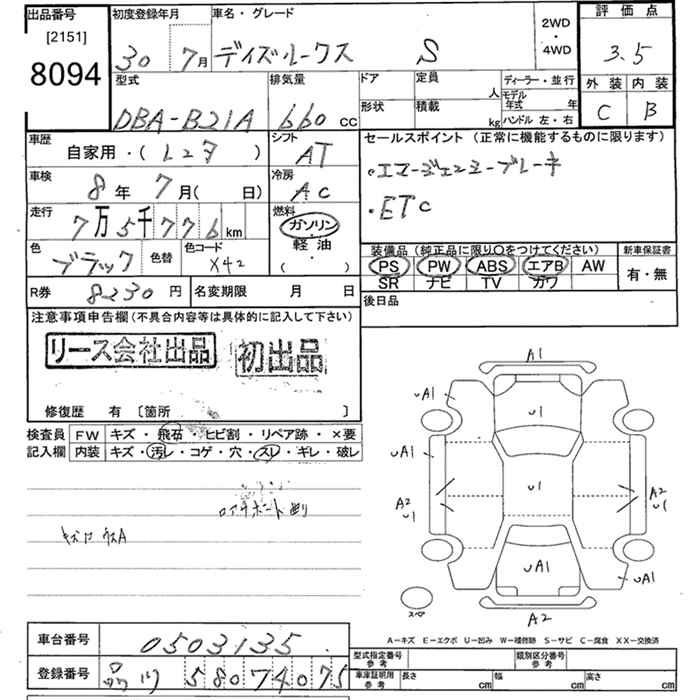 出品番号
[2151]
8094
初度登録年月
30 7月
車名・グレード
デイズルークス S
2WD
・
4WD
評価点
3.5
外装 内装
C B
型式
DBA-B21A
排気量
660 cc
ドア
形状
定員 人
積載 kg
ディーラー・並行
モデル年式 年
ハンドル 左・右
車歴
自家用・( レンタ )
シフト
AT
車検
8年 7月( 日)
冷房
AC
走行
7万5千776km
燃料
ガソリン
・
軽油
( ・ )
色
ブラック
色替
色コード
X42
R券
8230円
名変期限 月 日
セールスポイント (正常に機能するものに限ります)
・エマージェンシーブレーキ
・ETC
装備品 (純正品に限り〇をつけてください)
PS PW ABS エアB AW
SR ナビ TV カワ
新車保証書
有・無
後日品
注意事項申告欄 (不具合内容等は具体的に記入して下さい)
リース会社出品
初出品
修復歴 有 〔箇所 〕
検査員記入欄
FW キズ・飛石・ヒビ割・リペア跡・×要
内装 キズ・汚レ・コゲ・穴・スレ・ギレ・破レ
A1
υA1
υ1
υA1
υ1
A2
υ1
A2
υ1
υA1
υA1
スペア
A2
A-キズ E-エクボ U-凹み W-補修跡 S-サビ C-腐食 XX-交換済
車台番号
0503135
登録番号
580 7075
型式指定番号
参考
類別区分番号
参考
車庫証明用
参考
長さ cm
幅 cm
高さ cm